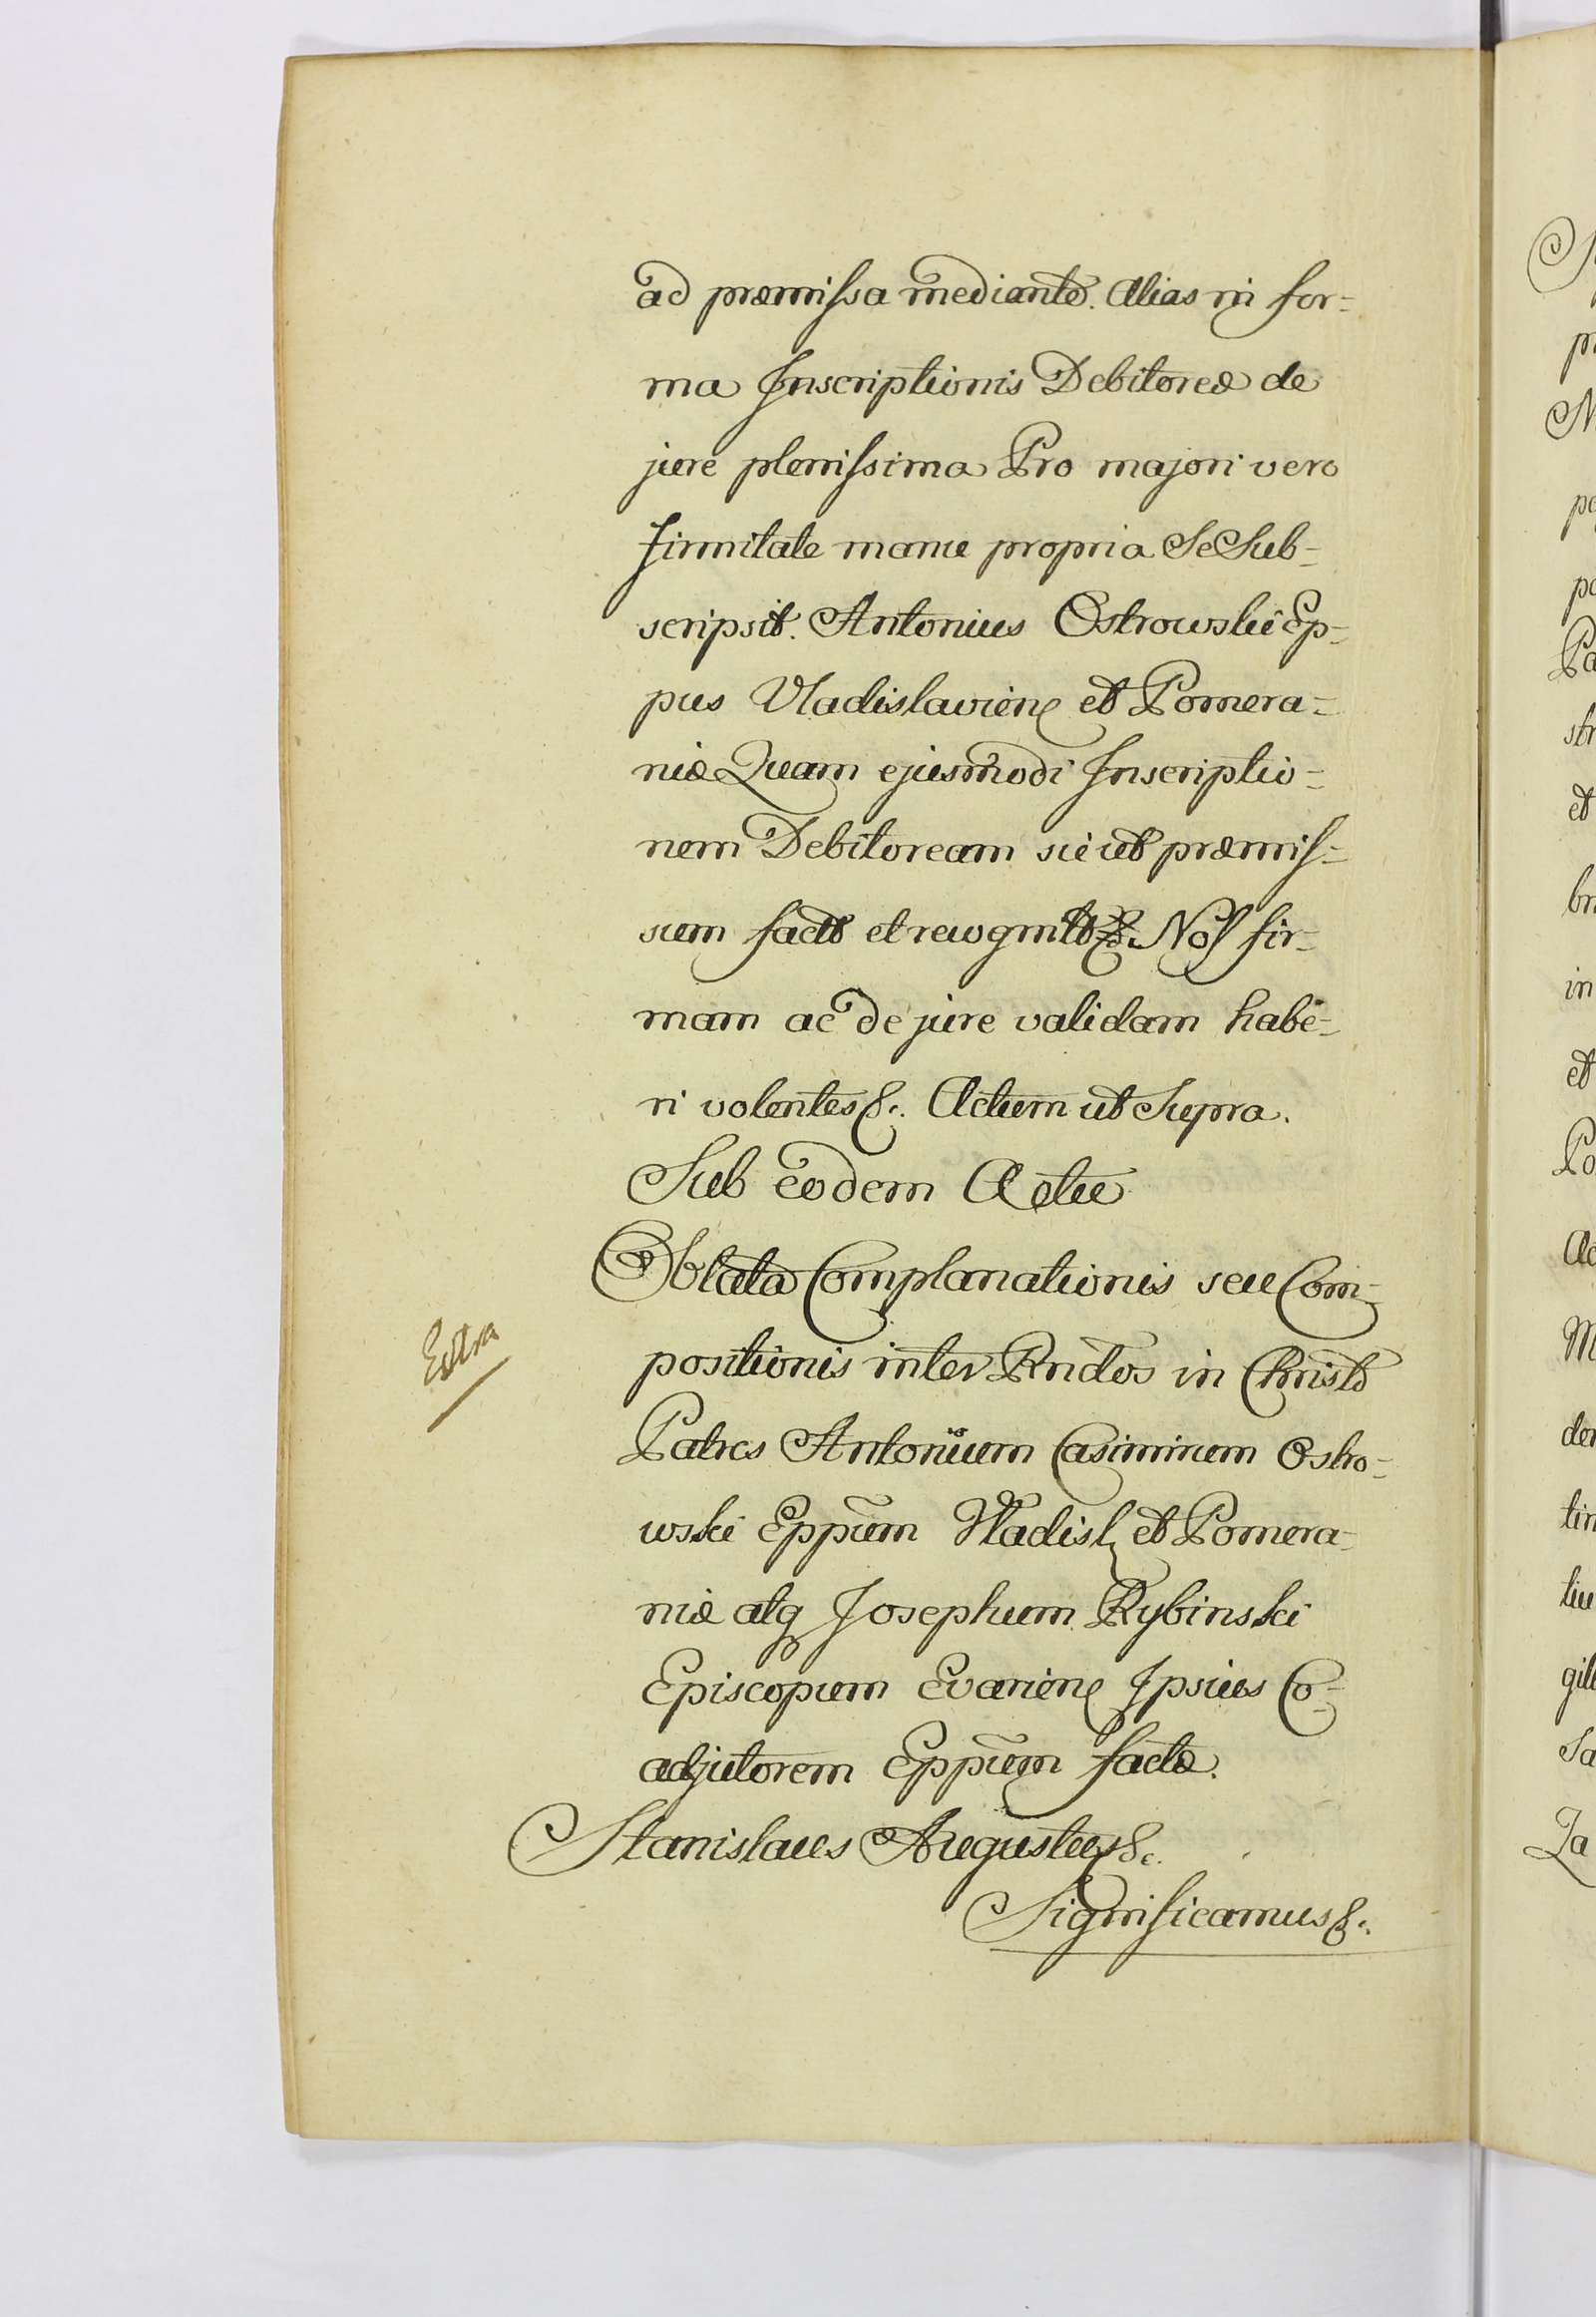 ad præmissa mediante. Alias in for=
ma Inscriptionis Debitoreæ de
jure plenissima Pro majori vero
firmitate manu propria Se Sub=
scripsit. Antonius Ostrowski Ep=
pus Vladislavien et Pomera=
niæ Quam ejusmodi Inscriptio=
nem Debitoream sicut præmis=
sum fact et recognit Nos fir=
mam ac de jure validam habe=
ri volentes &c. Actum ut Supra.
Sub eodem Actu
Oblata Complanationis seu Com=
positionis inter Rndos in Christo
Extra
Patres Antonium Casimirum Ostro=
wski Eppum Vladisl et Pomera=
niæ atq Josephum Rybinski
Episcopum Evarien Ipsius Co=
adjutorem Eppum facta.
Stanislaus Augustus &c.
Significamus &c.